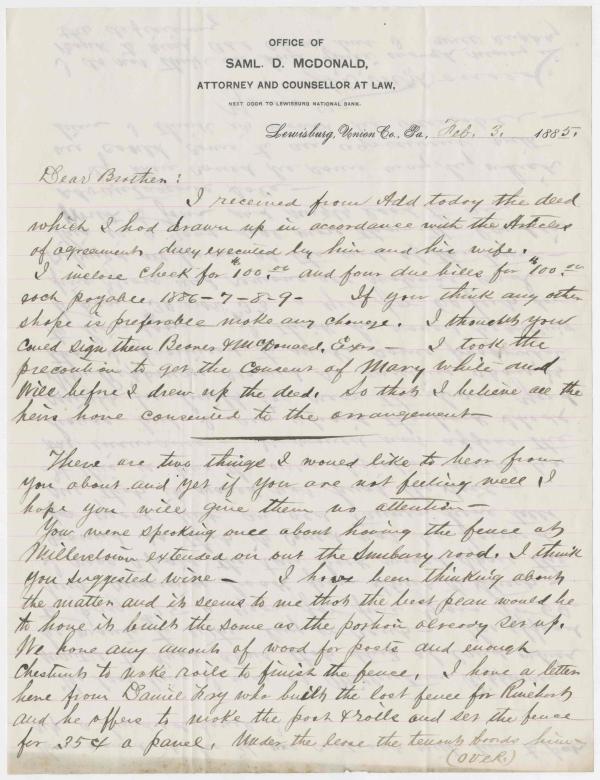 OFFICE OF
SAML. D. McDONALD,
ATTORNEY AND COUNSELLOR AT LAW,
NEXT DOOR TO LEWISBURG NATIONAL BANK.
Lewisburg, Union Co., Pa., Feb. 3. 1885.
Dear Brother:
I received from Add today the deed
which I had drawn up in accordance with the Articles
of agreement duly executed by him and his wife.
I inclose check for $100.00 and four due bills for $100.00
each payable 1886-7-8-9- If you think any other
shape is preferable make any change. I thought you
could sign them Beaver & McDonald, Exrs — I took the
precaution to get the consent of Mary White and
Will before I drew up the deed. So that I believe all the
heirs have consented to the arrangement —
There are two things I would like to hear from
you about and yet if you are not feeling well I
hope you will give them no attention —
You were speaking once about having the fence at
Millerstown extended on out the Sunbury road. I think
you suggested wire — I have been thinking about
the matter and it seems to me that the best plan would be
to have it built the same as the portion already set up.
We have any amount of wood for posts and enough
Chestnut to make rails to finish the fence. I have a letter
here from Daniel who built the last fence for Rinehart
and he offers to make the post & rails and set the fence
for 35¢ a panel. Under the lease the tenant boards him —
(over.)